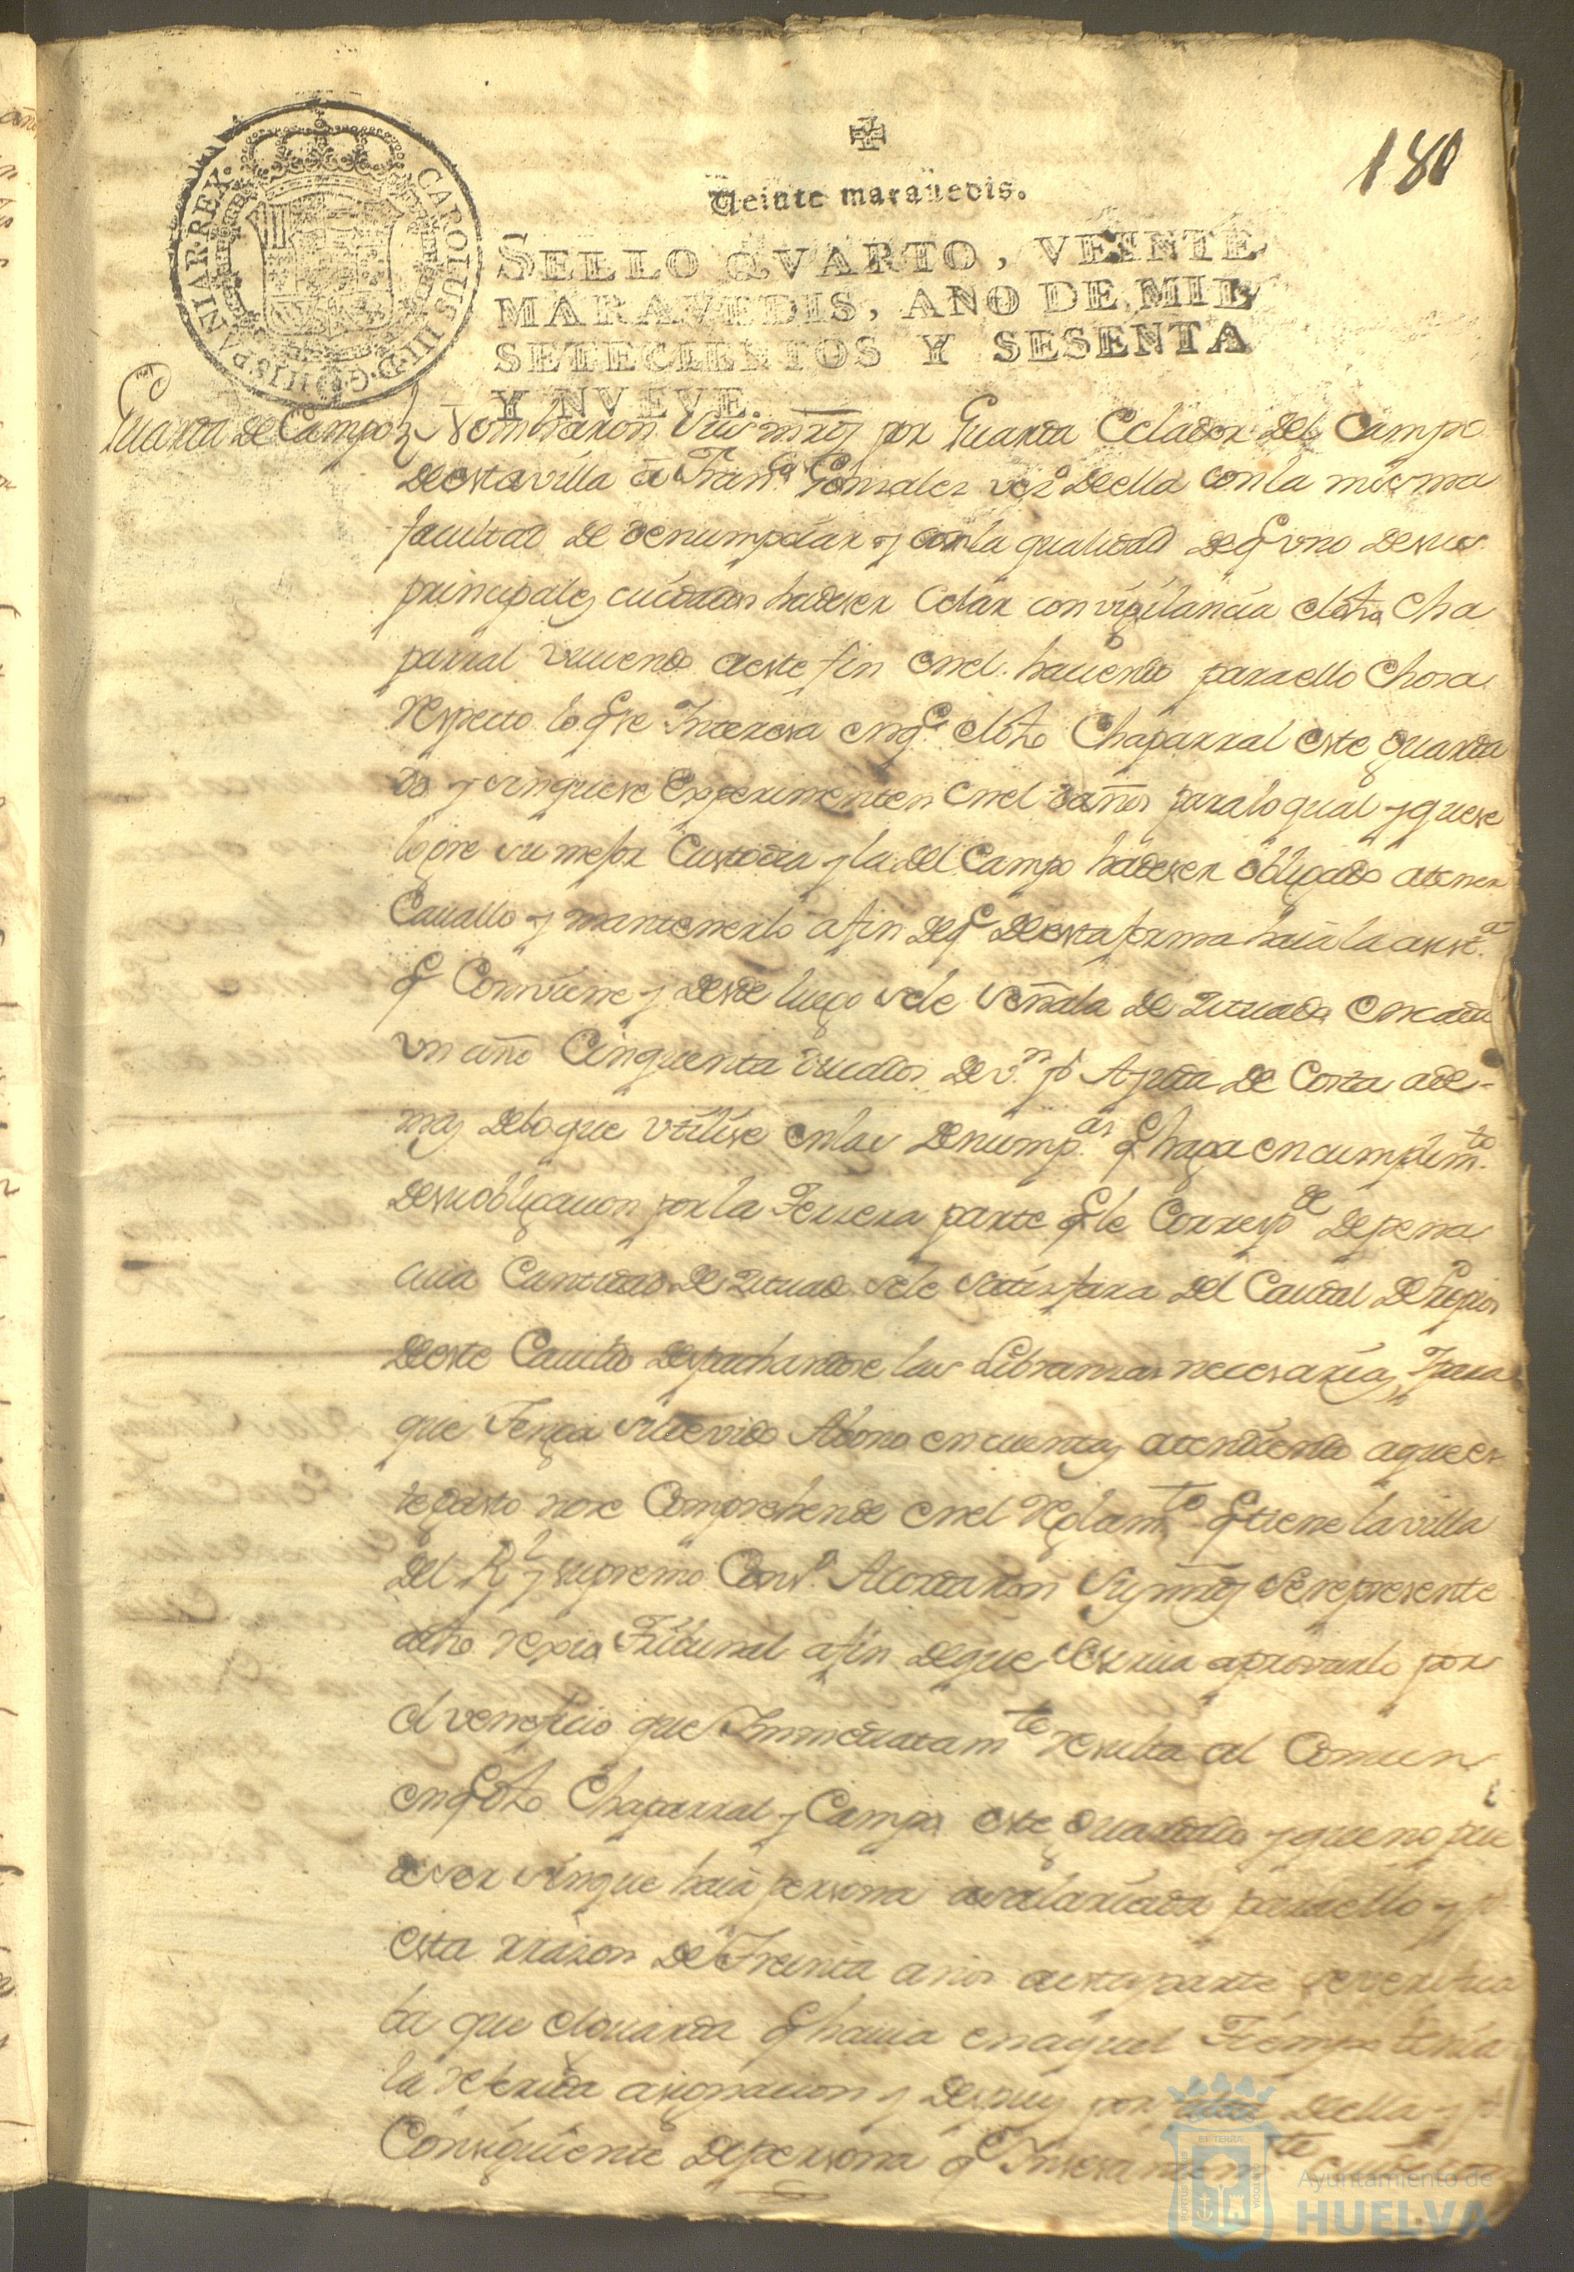 180
Veinte maravedis.
CAROLUS III D. G. HISPANIAR. REX.
SELLO QVARTO, VEINTE
MARAVEDIS, AÑO DE MIL
SETECIENTOS Y SESENTA
Y NVEVE.
Guarda de Campo
Nombraron Sus mrds por Guarda Celador del Campo
de esta villa a Franco Gonzales vezo de ella con la misma
facultad de denumpciar y con la qualidad de q uno de sus
principales cuidados ha de ser Celar con vigilancia el dho Cha
parral viviendo a este fin en el haviendo para ello Chosa
respecto lo q se Interesa en q el dho Chaparral este guarda
do y sin que se experimenten en el daños para lo qual y que se
logre su mejor Custodia y la del Campo ha de ser obligado a tener
Cavallo y mantenerlo a fin de q de esta forma haia la asista
q Combiene y desde luego se le señala de Situado en cada
un año Cinquenta ducados de vn pr Ayuda de Costa ade-
mas de lo que utilise en las denumpas q haga en cumplimto
de su obligacion por la Tersera parte q le Correspde de pena
cuia Cantidad de Situado se le satisfara del Caudal de Propios
de este Cavildo despachandose las Libranzas necesarias, Y para
que Tenga su devido Abono en cuentas atendiendo a que es
te gasto no se Comprehende en el reglamto q tiene la villa
del Rl y supremo Conso Acordaron Sus mrds se represente
a dho regio Tribunal a fin de que se sirva aprovarlo por
el veneficio que Immediatamte resulta al Comun
en q dho Chaparral y Campo este guardado y que no pue
de ser sin que haia persona asalariada para ello y pr
esta razon de Treinta años a esta parte se verifica
ba que el guarda q havia en aquel Tiempo tenia
la referida asignacion y despues por falta de ella y pr
Consiguiente de persona q Insesantemte
Ayuntamiento de
HUELVA